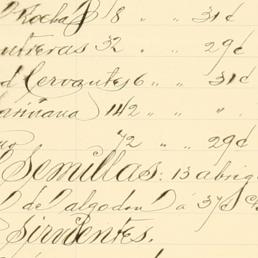 Rocha 18 " " 31¢
ntreras 32 " " 29¢
d Cervantes 6 " " 31¢
ariñana 142 " " "
72 " " 29¢
Semillas: 13 abrig
de algodon á 37½ c
Sirvientes.